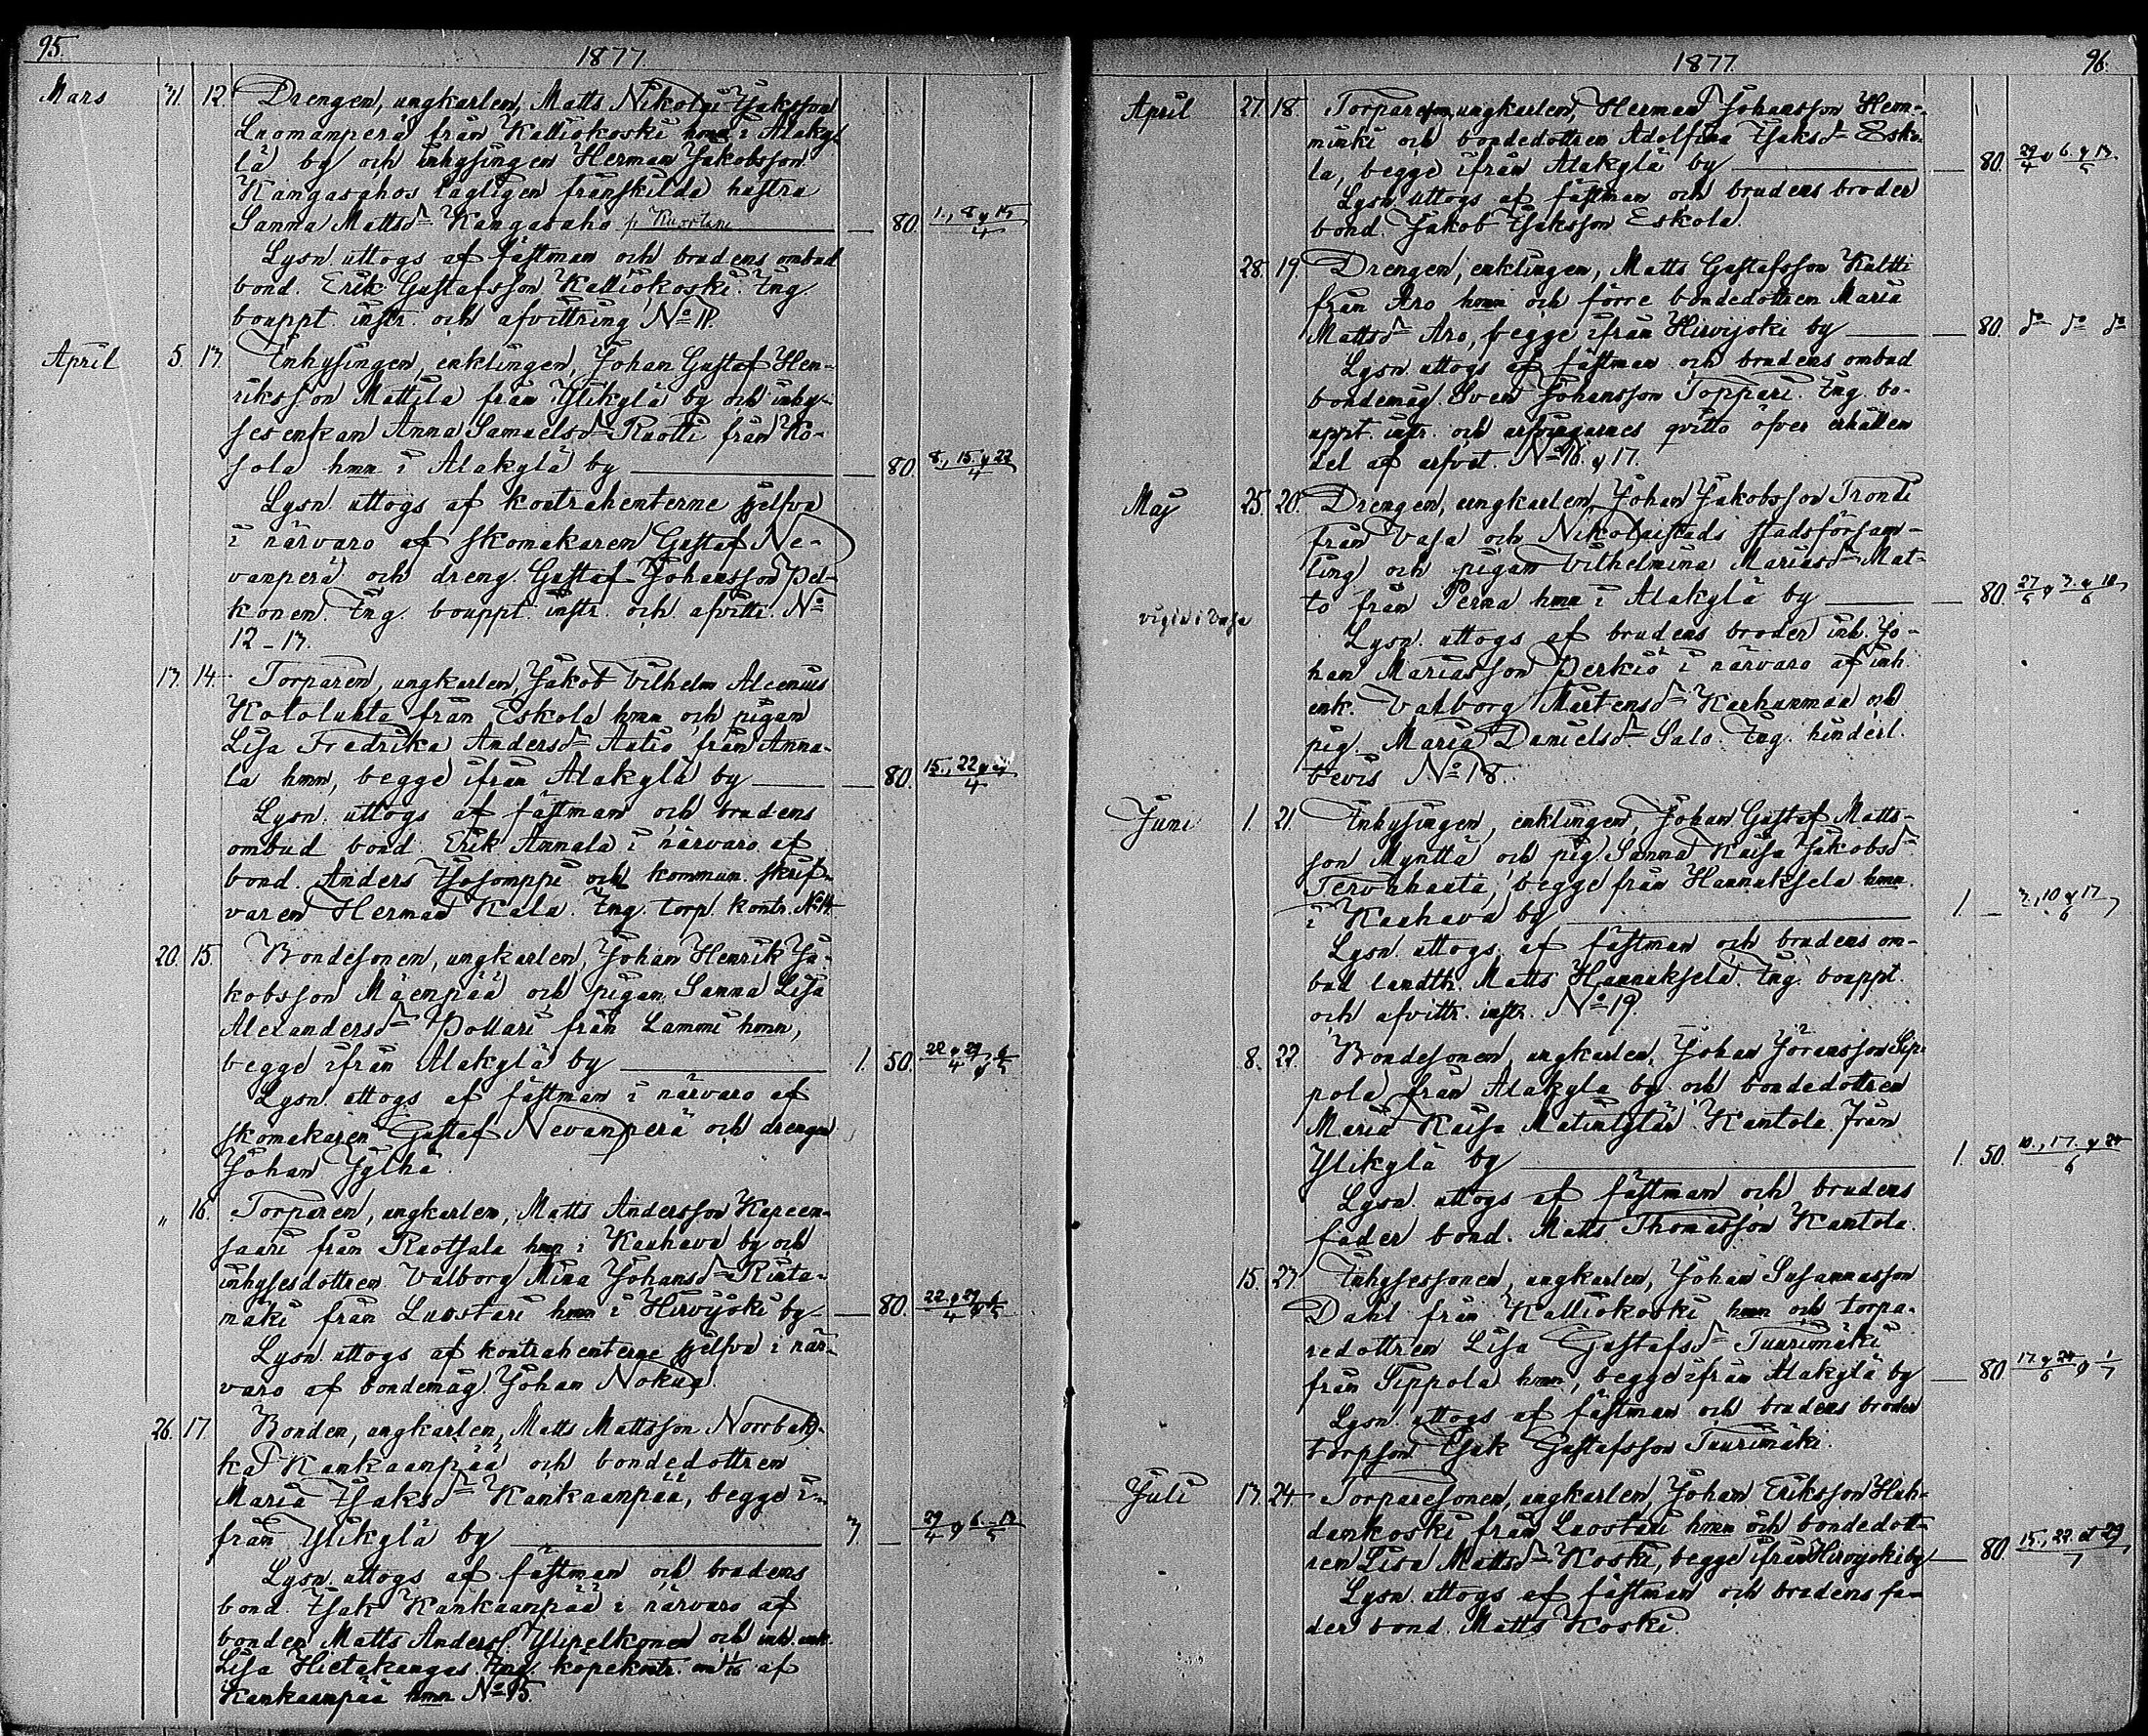 95.
1877.
Mars 31. 12. Drengen, ungkarlen, Matts Nikolai Isaksson
Luomanperä från Kalliokoski hmn i Alaky-
lä by och inhysingen Herman Jakobsson
Kangasahos lagligen frånskilda hustru
Sanna Mattsdr Kangasaho — 80. 1., 8 & 15/4
Lysn. uttogs af fästman och brudens ombud
bond. Erik Gustafsson Kalliokoski. Ing.
bouppt. instr. och afvittring No 11.
April 5. 13. Inhysingen, enklingen, Johan Gustaf Hen-
riksson Mattila från Ylikylä by och inhy-
sesenkan Anna Samuelsdr Ruotti från Ko-
sola hmn i Alakylä by — 80. 8., 15. & 22/4
Lysn. uttogs af kontrahenterne sjelfva
i närvaro af skomakaren Gustaf Ne-
vanperä och dreng. Gustaf Johansson Pel-
konen. Ing. bouppt. instr. och afvittr. No
12-13.
13. 14. Torparen, ungkarlen, Jakob Vilhelm Alcenius
Kotoluhta från Eskola hmn och pigan
Lisa Fredrika Andersdr Autio från Anna-
la hmn, begge ifrån Alakylä by — 80. 15., 22 & 29/4
Lysn. uttogs af fästman och brudens
ombud bond. Erik Annala i närvaro af
bond. Anders Isosomppi och kommun. skrif-
varen Herman Kala. Ing. torp. kontr. No 14.
20. 15. Bondesonen, ungkarlen, Johan Henrik Ja-
kobsson Mäenpää och pigan Sanna Lisa
Alexandersdr Pollari från Lammi hmn,
begge ifrån Alakylä by — 1. 50. 22 & 29/4 & 6/5
Lysn. uttogs af fästman i närvaro af
skomakaren Gustaf Nevanperä och drengen
Johan Jylhä.
" 16. Torparen, ungkarlen, Matts Andersson Kapeen-
saari från Ruotsala hmn i Kauhava by och
inhysesdottren Valborg Mina Johansdr Rinta-
mäki från Luostari hmn i Hirvijoki by — 80. 22. & 29/4 & 6/5
Lysn. uttogs af kontrahenterne sjelfva i när-
varo af bondemåg. Johan Nokua.
26. 17. Bonden, ungkarlen, Matts Mattsson Norrbak-
ka Kankaanpää och bondedottren
Maria Isaksdr Kankaanpää, begge i-
från Ylikylä by — 3. — 29/4 & 6.-13/5
Lysn. uttogs af fästman och brudens
bond. Isak Kankaanpää i närvaro af
bonden Matts Anderss. Ylipelkonen och inh. enk.
Lisa Hietakangas. Ing. köpekontr. om 1/16 af
Kankaanpää hmn No 15.
1877.
96.
April 27. 18. ungkarlen, Herman Johansson Hem-
minki och bondedottren Adolfina Isaksdr Esko-
la, begge ifrån Alakylä by — 80. 29/4 & 6. & 13./5
Lysn. uttogs af fästman och brudens broder
bond. Jakob Isaksson Eskola.
28. 19. Drengen, enklingen, Matts Gustafsson Kultti
från Aro hmn och förre bondedottren Maria
Mattsdr Aro, begge ifrån Hirvijoki by — 80. do do do
Lysn. uttogs af fästman och brudens ombud
bondemåg. Sven Johansson Toppari. Ing. bo-
uppt. instr. och arfvingarnes qvitto öfver erhållen
del af arfvet. No 16 & 17.
Maj 25. 20. Drengen, ungkarlen, Johan Jakobsson Trondi
från Vasa och Nikolaistads stadsförsam-
ling och pigan Vilhelmina Mariasdr Mat-
to från Perna hmn i Alakylä by — 80. 27/5 & 3. & 10/6
vigde i Vasa
Lysn. uttogs af brudens broder inh. Jo-
han Mariasson Perkiö i närvaro af inh.
enk. Valborg Mårtensdr Karhunmaa och
pig. Maria Danielsdr Salo. Ing. hinderl.
bevis No 18.
Juni 1. 21. Inhysingen, enklingen, Johan Gustaf Matts-
son Mynttä och pig. Sanna Kaisa Jakobsdr
Tervahauta, begge från Hannuksela hmn.
i Kauhava by — 1. — 3., 10 & 17/6
Lysn. uttogs af fästman och brudens om-
bud landtb. Matts Hannuksela. Ing. bouppt.
och afvittr. instr. No 19.
8. 22. Bondesonen, ungkarlen, Johan Jöransson Sip-
pola från Alakylä by och bondedottren
Maria Kaisa Matintytär Kantola från
Ylikylä by — 1. 50. 10., 17. & 24/6
Lysn. uttogs af fästman och brudens
fader bond. Matts Thomasson Kantola.
15. 23. Inhysessonen, ungkarlen, Johan Susannasson
Dahl från Kalliokoski hmn och torpa-
redottren Lisa Gustafsdr Tuurimäki
från Sippola hmn, begge ifrån Alakylä by — 80. 17. & 24/6 & 1/7
Lysn. uttogs af fästman och brudens broder
torpson. Isak Gustafsson Tuurimäki.
Juli 13. 24. Torparesonen, ungkarlen, Johan Eriksson Huh-
dankoski från Luostari hmn och bondedott-
ren Lisa Mattsdr Koski, begge ifrån Hirvijoki by — 80. 15., 22. et 29/7
Lysn. uttogs af fästman och brudens fa-
der bond. Matts Koski.